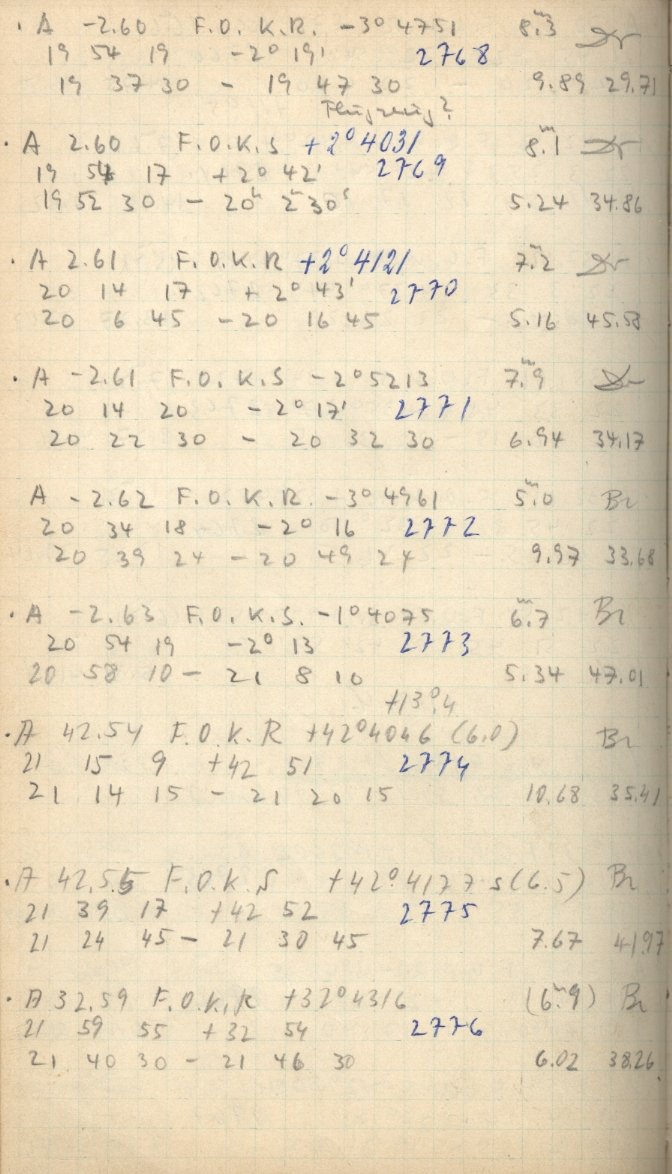 · A -2.60 F.O. K.R. -3° 4751 8.ᵐ3 Dr
19 54 19 -2° 19' 2768
19 37 30 - 19 47 30 9.89 29.71
Flugzeug?
· A 2.60 F.O.K.S +2° 4031 8.ᵐ1 Dr
19 54 17 +2° 42' 2769
19 52 30 - 20ʰ 2ᵐ30ˢ 5.24 34.86
· A 2.61 F.O.K.R +2° 4121 7.ᵐ2 Dr
20 14 17 +2° 43' 2770
20 6 45 - 20 16 45 5.16 45.58
· A -2.61 F.O. K.S -2° 5213 7.ᵐ9 Dr
20 14 20 -2° 17' 2771
20 22 30 - 20 32 30 6.94 34.17
A -2.62 F.O. K.R. -3° 4961 5.ᵐ0 Br
20 34 18 -2° 16 2772
20 39 24 - 20 49 24 9.97 33.68
· A -2.63 F.O. K.S. -1° 4075 6.ᵐ7 Br
20 54 19 -2° 13 2773
20 58 10 - 21 8 10 5.34 47.01
+13°.4
· A 42.54 F.O.K.R +42° 4046 (6.0) Br
21 15 9 +42 51 2774
21 14 15 - 21 20 15 10.68 35.41
· A 42.55 F.O.K.S +42° 4177 s (6.5) Br
21 39 17 +42 52 2775
21 24 45 - 21 30 45 7.67 41.97
· A 32.59 F.O.K.R +32° 4316 (6.ᵐ9) Br
21 59 55 +32 54 2776
21 40 30 - 21 46 30 6.02 38.26